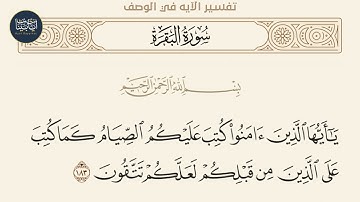 تفسير الآيه في الوصف
سُورَةُ البَقَرَةِ
بِسْمِ اللَّهِ الرَّحْمَٰنِ الرَّحِيمِ
يَـٰٓأَيُّهَا ٱلَّذِينَ ءَامَنُوا۟ كُتِبَ عَلَيْكُمُ ٱلصِّيَامُ كَمَا كُتِبَ
عَلَى ٱلَّذِينَ مِن قَبْلِكُمْ لَعَلَّكُمْ تَتَّقُونَ ١٨٣